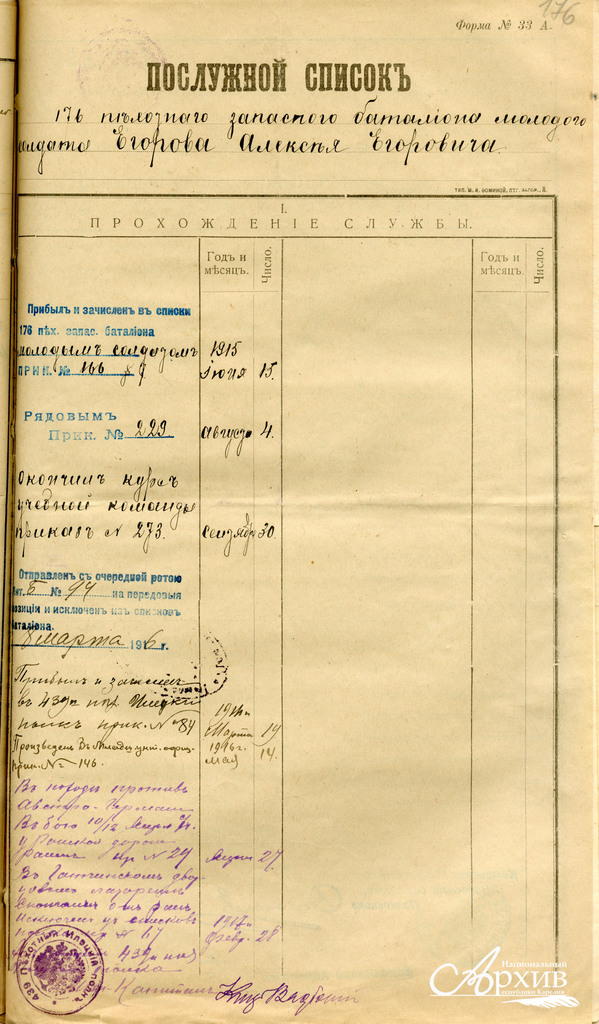 176
Форма № 33 А.
ПОСЛУЖНОЙ СПИСОКЪ
176 пѣхотнаго запаснаго баталіона молодого
солдата Егорова Алексѣя Егоровича.
ТИП. М. И. ФОМИНОЙ, ПТГ. ЗАГОР., Й.
I.
ПРОХОЖДЕНІЕ СЛУЖБЫ.
Годъ и мѣсяцъ.
Число.
Годъ и мѣсяцъ.
Число.
Прибылъ и зачисленъ въ списки
176 пѣх. запас. баталіона
молодымъ солдатомъ 1915
ПРИК. № 166 Іюня 15.
Рядовымъ
Прик. № 229 Августа 4.
Окончилъ курсъ
учебной команды
приказъ № 273. Сентября 30.
Отправленъ съ очередной ротою
Лит. Б № 94 на передовыя
позиціи и исключенъ изъ списковъ
баталіона.
8 марта 1916 г.
Прибылъ и
въ 439 пѣх. Илецкій
полкъ прик. № 84 Марта 19
Произведенъ въ младш. унт. офиц. 1916 г.
прик. № 146. мая 14.
Въ походѣ противъ
Австро-Германіи
Въ бою 10/12
у дороги
раненъ пр № 27
Въ Гатчинскомъ двор
цовомъ лазаретѣ
скончался отъ ранъ
Исключенъ изъ списковъ 1917
№ 67 февр. 28
439 пѣх
полка
439 ПѢХОТНЫЙ ИЛЕЦКІЙ ПОЛКЪ
Капитанъ
Национальный
Архив
Республики Карелия